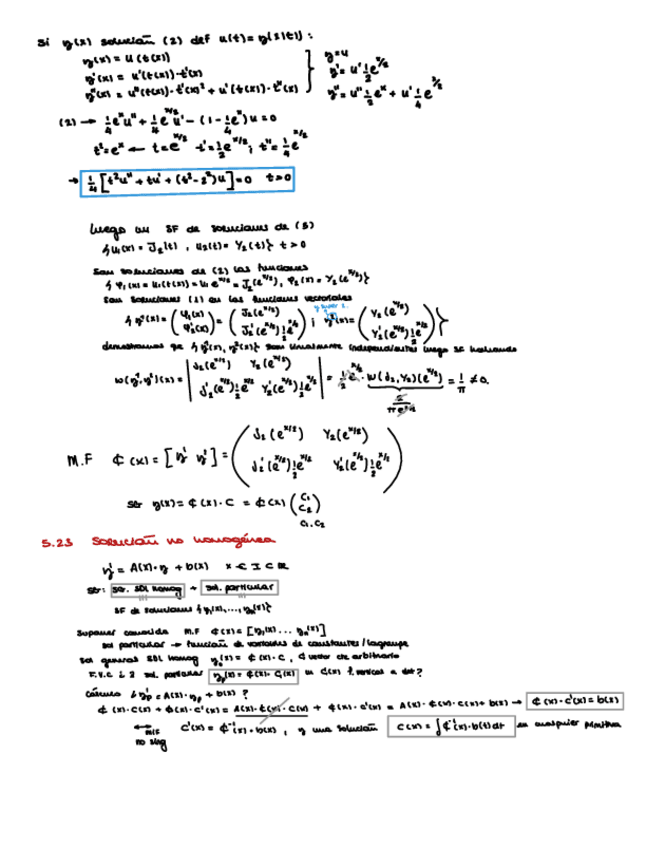 Si y(x) solución (2) def u(t)= y(x(t)) :
y(x) = u(t(x))
y'(x) = u'(t(x))·t'(x)
y''(x) = u''(t(x))·t'(x)² + u'(t(x))·t''(x)
y=u
y'= u' 1/2 e^{x/2}
y''= u'' 1/2 e^x + u' 1/4 e^{x/2}
(2) → 1/4 e^x u'' + 1/4 e^{x/2} u' - (1 - 1/4 e^x) u = 0
t²= e^x ← t= e^{x/2} t'= 1/2 e^{x/2} ; t''= 1/4 e^{x/2}
→ 1/4 [t²u'' + tu' + (t²-2²)u] = 0 t>0
luego un SF de soluciones de (3)
{u₁(x) = J₂(t) , u₂(t) = Y₂(t)} t>0
Son soluciones de (2) las funciones
{φ₁(x) = u₁(t(x)) = u₁ e^{x/2} = J₂(e^{x/2}), φ₂(x) = Y₂(e^{x/2})}
Son soluciones (1) en las funciones vectoriales
{y¹(x) = (φ₁(x) φ₁'(x)) = (J₂(e^{x/2}) J₂'(e^{x/2}) 1/2 e^{x/2}) ; y²(x) = (Y₂(e^{x/2}) Y₂'(e^{x/2}) 1/2 e^{x/2})}
demostramos que {y¹(x), y²(x)} son linealmente independientes luego SF hallando
W(y¹, y²)(x) = | J₂(e^{x/2}) Y₂(e^{x/2}) J₂'(e^{x/2}) 1/2 e^{x/2} Y₂'(e^{x/2}) 1/2 e^{x/2} | = 1/2 e^{x/2} · W(J₂, Y₂)(e^{x/2}) = 1/π ≠ 0.
2/(π e^{x/2})
M.F ¢(x) = [y¹ y²] = ( J₂(e^{x/2}) Y₂(e^{x/2}) J₂'(e^{x/2}) 1/2 e^{x/2} Y₂'(e^{x/2}) 1/2 e^{x/2} )
SG: y(x) = ¢(x) · C = ¢(x) (C₁ C₂)
C₁, C₂
5.23 Solución no homogénea
y' = A(x)·y + b(x) x ∈ I ⊂ R
SG: SG. SDL homog + sol. particular
SF de soluciones {y₁(x), ..., yₙ(x)}
Suponer conocida M.F ¢(x) = [y₁(x) ... yₙ(x)]
sol particular → función de variación de constantes / Lagrange
Sol general SDL homog yₕ(x) = ¢(x)·C , C vector cte arbitrario
F.V.C ¿ ∃ sol. particular yₚ(x) = ¢(x)·C(x)
Cálculo ¿ y'ₚ = A(x)·yₚ + b(x) ?
¢'(x)·C(x) + ¢(x)·C'(x) = A(x)·¢(x)·C(x) + ¢(x)·C'(x) = A(x)·¢(x)·C(x) + b(x) → ¢(x)·C'(x) = b(x)
⟷ M.F no sing C'(x) = ¢⁻¹(x)·b(x) , y una solución C(x) = ∫¢⁻¹(x)·b(t)dt en cualquier primitiva